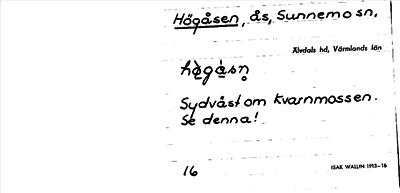 Högåsen, ås, Sunnemo sn.
Älvdals hd, Värmlands län
Sydväst om Kvarnmossen.
Se denna!
16
ISAK WALLIN 1913-16